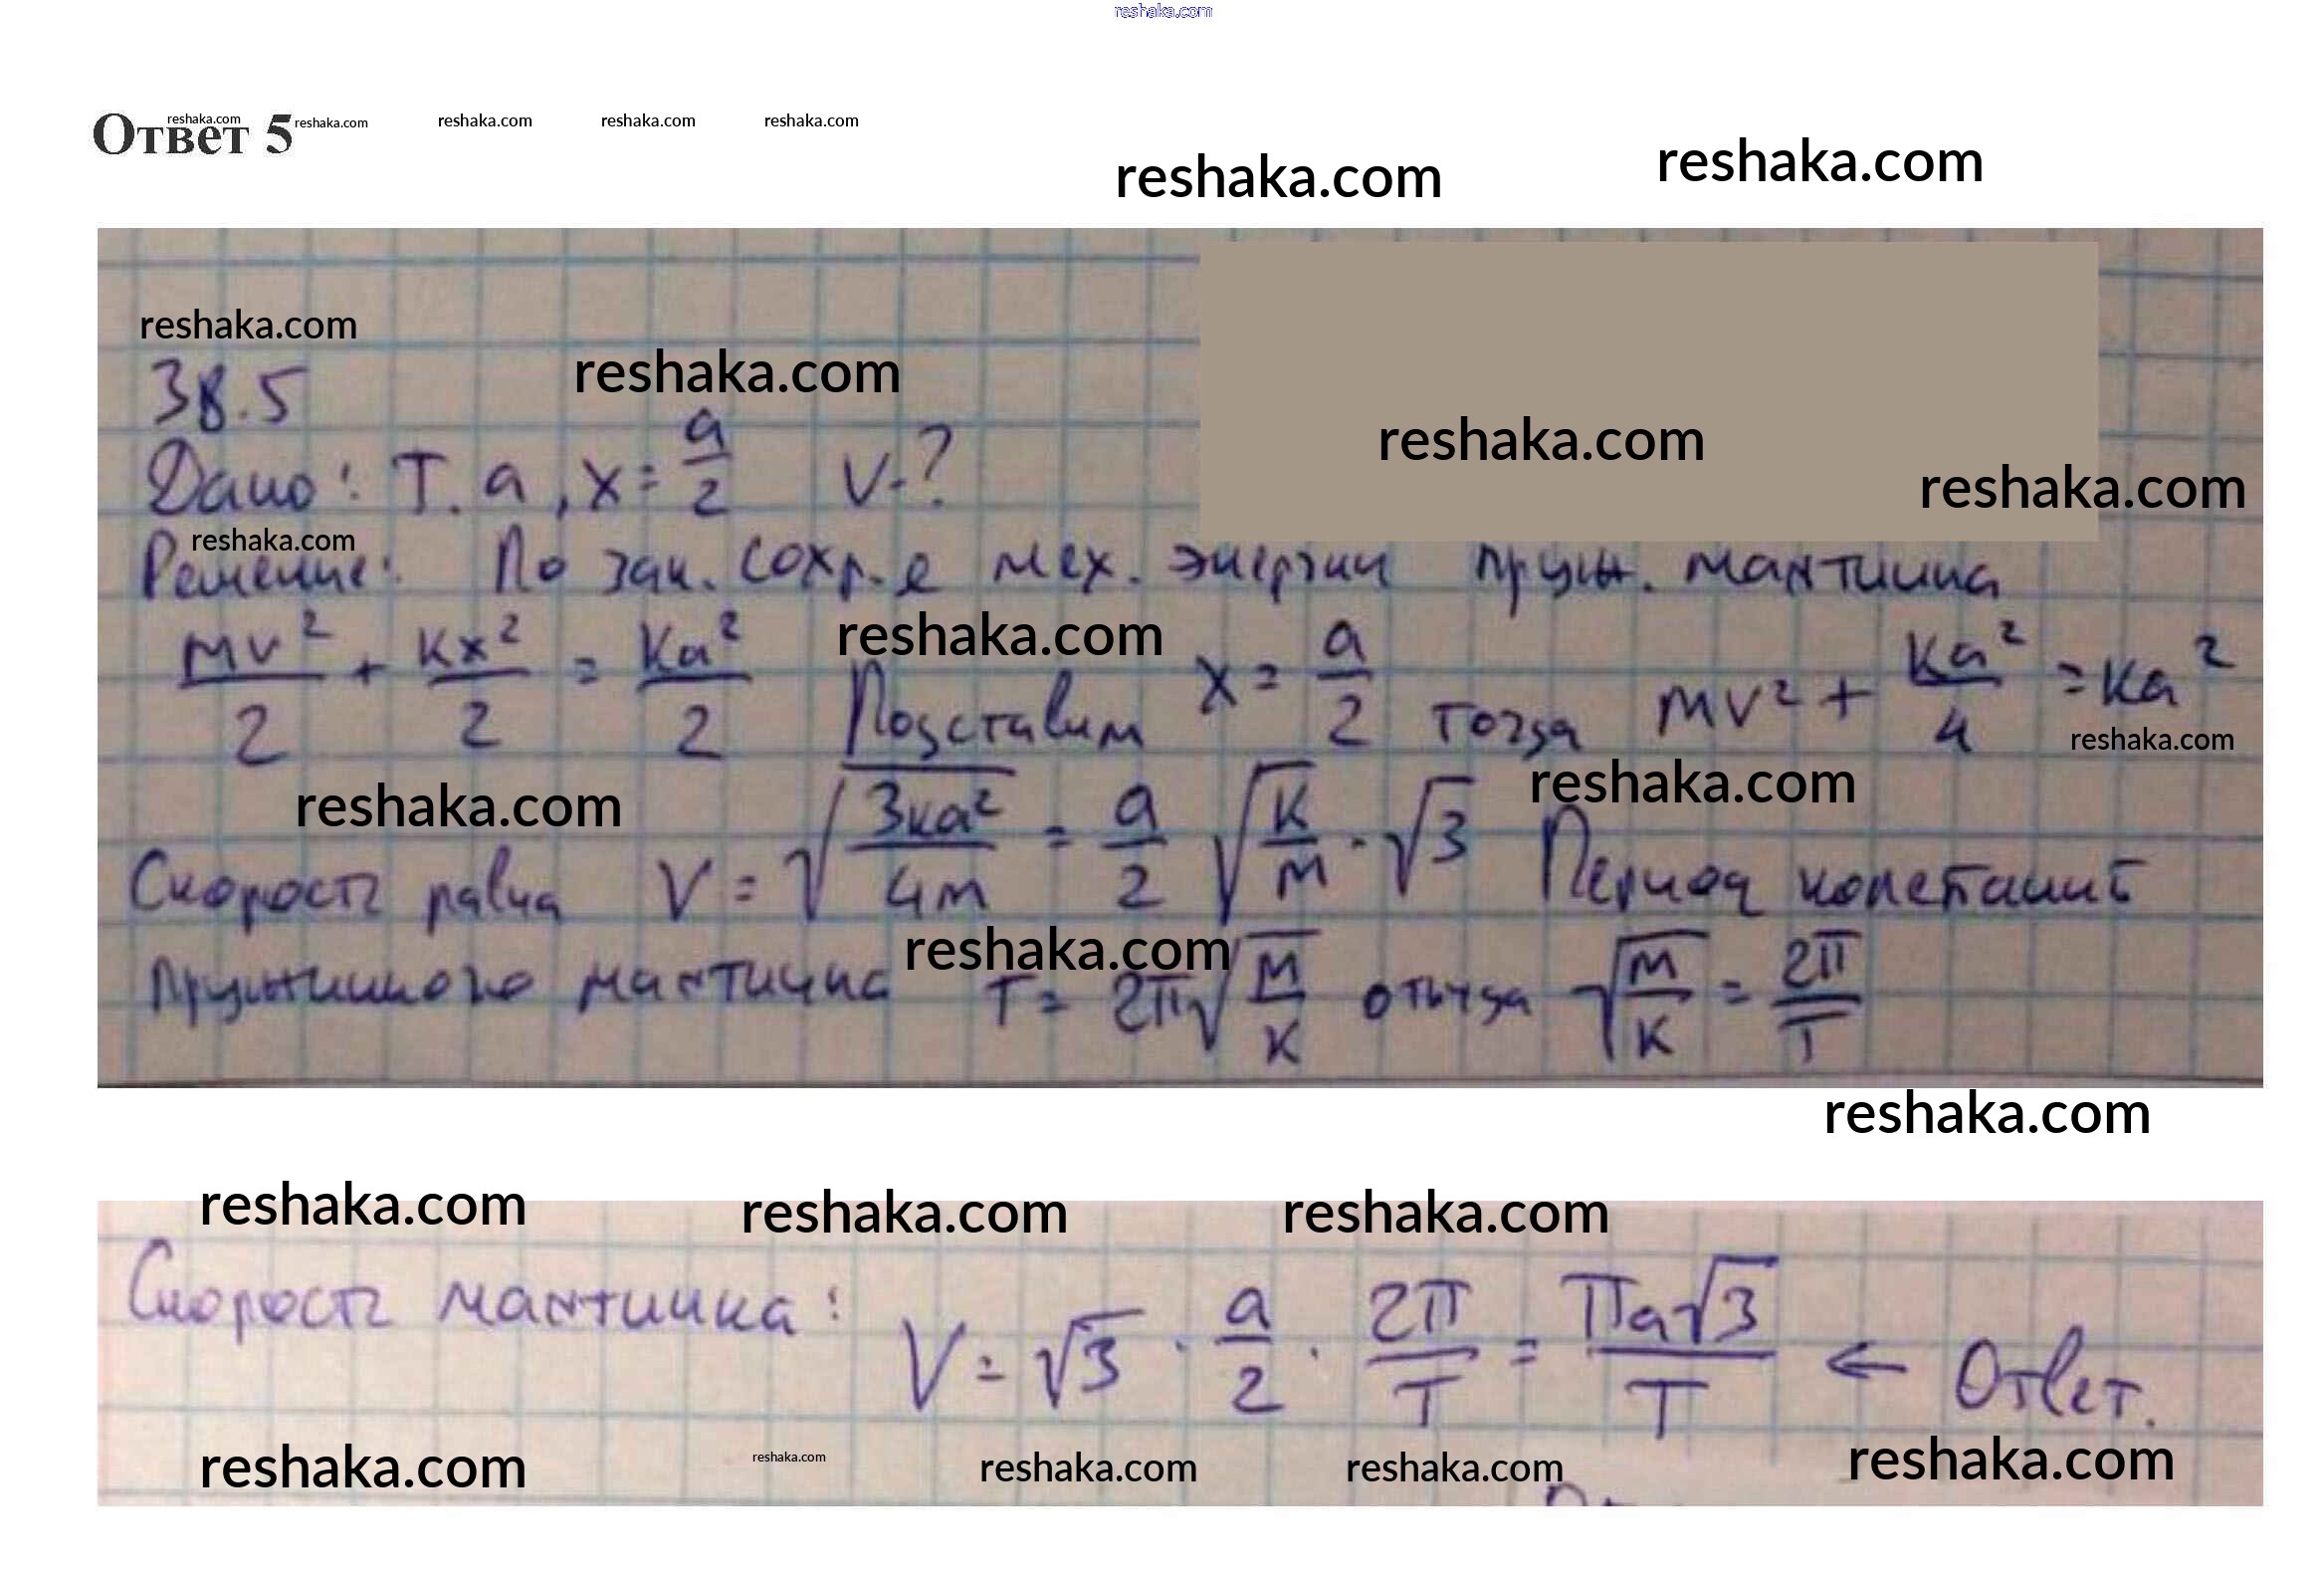 reshaka.com
Ответ 5 reshaka.com reshaka.com reshaka.com reshaka.com reshaka.com
reshaka.com reshaka.com
reshaka.com
38.5 reshaka.com
reshaka.com
Дано: T. a, x = a/2 V-?
reshaka.com
reshaka.com
Решение: По зак. сохр-е мех. энергии пруж. маятника
reshaka.com
mv²/2 + kx²/2 = ka²/2 Подставим x = a/2 тогда mv² + ka²/4 = ka²
reshaka.com
reshaka.com reshaka.com
Скорость равна V = √(3ka²/4m) = a/2 √(k/m) · √3 Период колебаний
reshaka.com
пружинного маятника T = 2π√(m/k) откуда √(m/k) = 2π/T
reshaka.com
reshaka.com reshaka.com reshaka.com
Скорость маятника: V = √3 · a/2 · 2π/T = πa√3/T ← Ответ.
reshaka.com reshaka.com reshaka.com reshaka.com reshaka.com